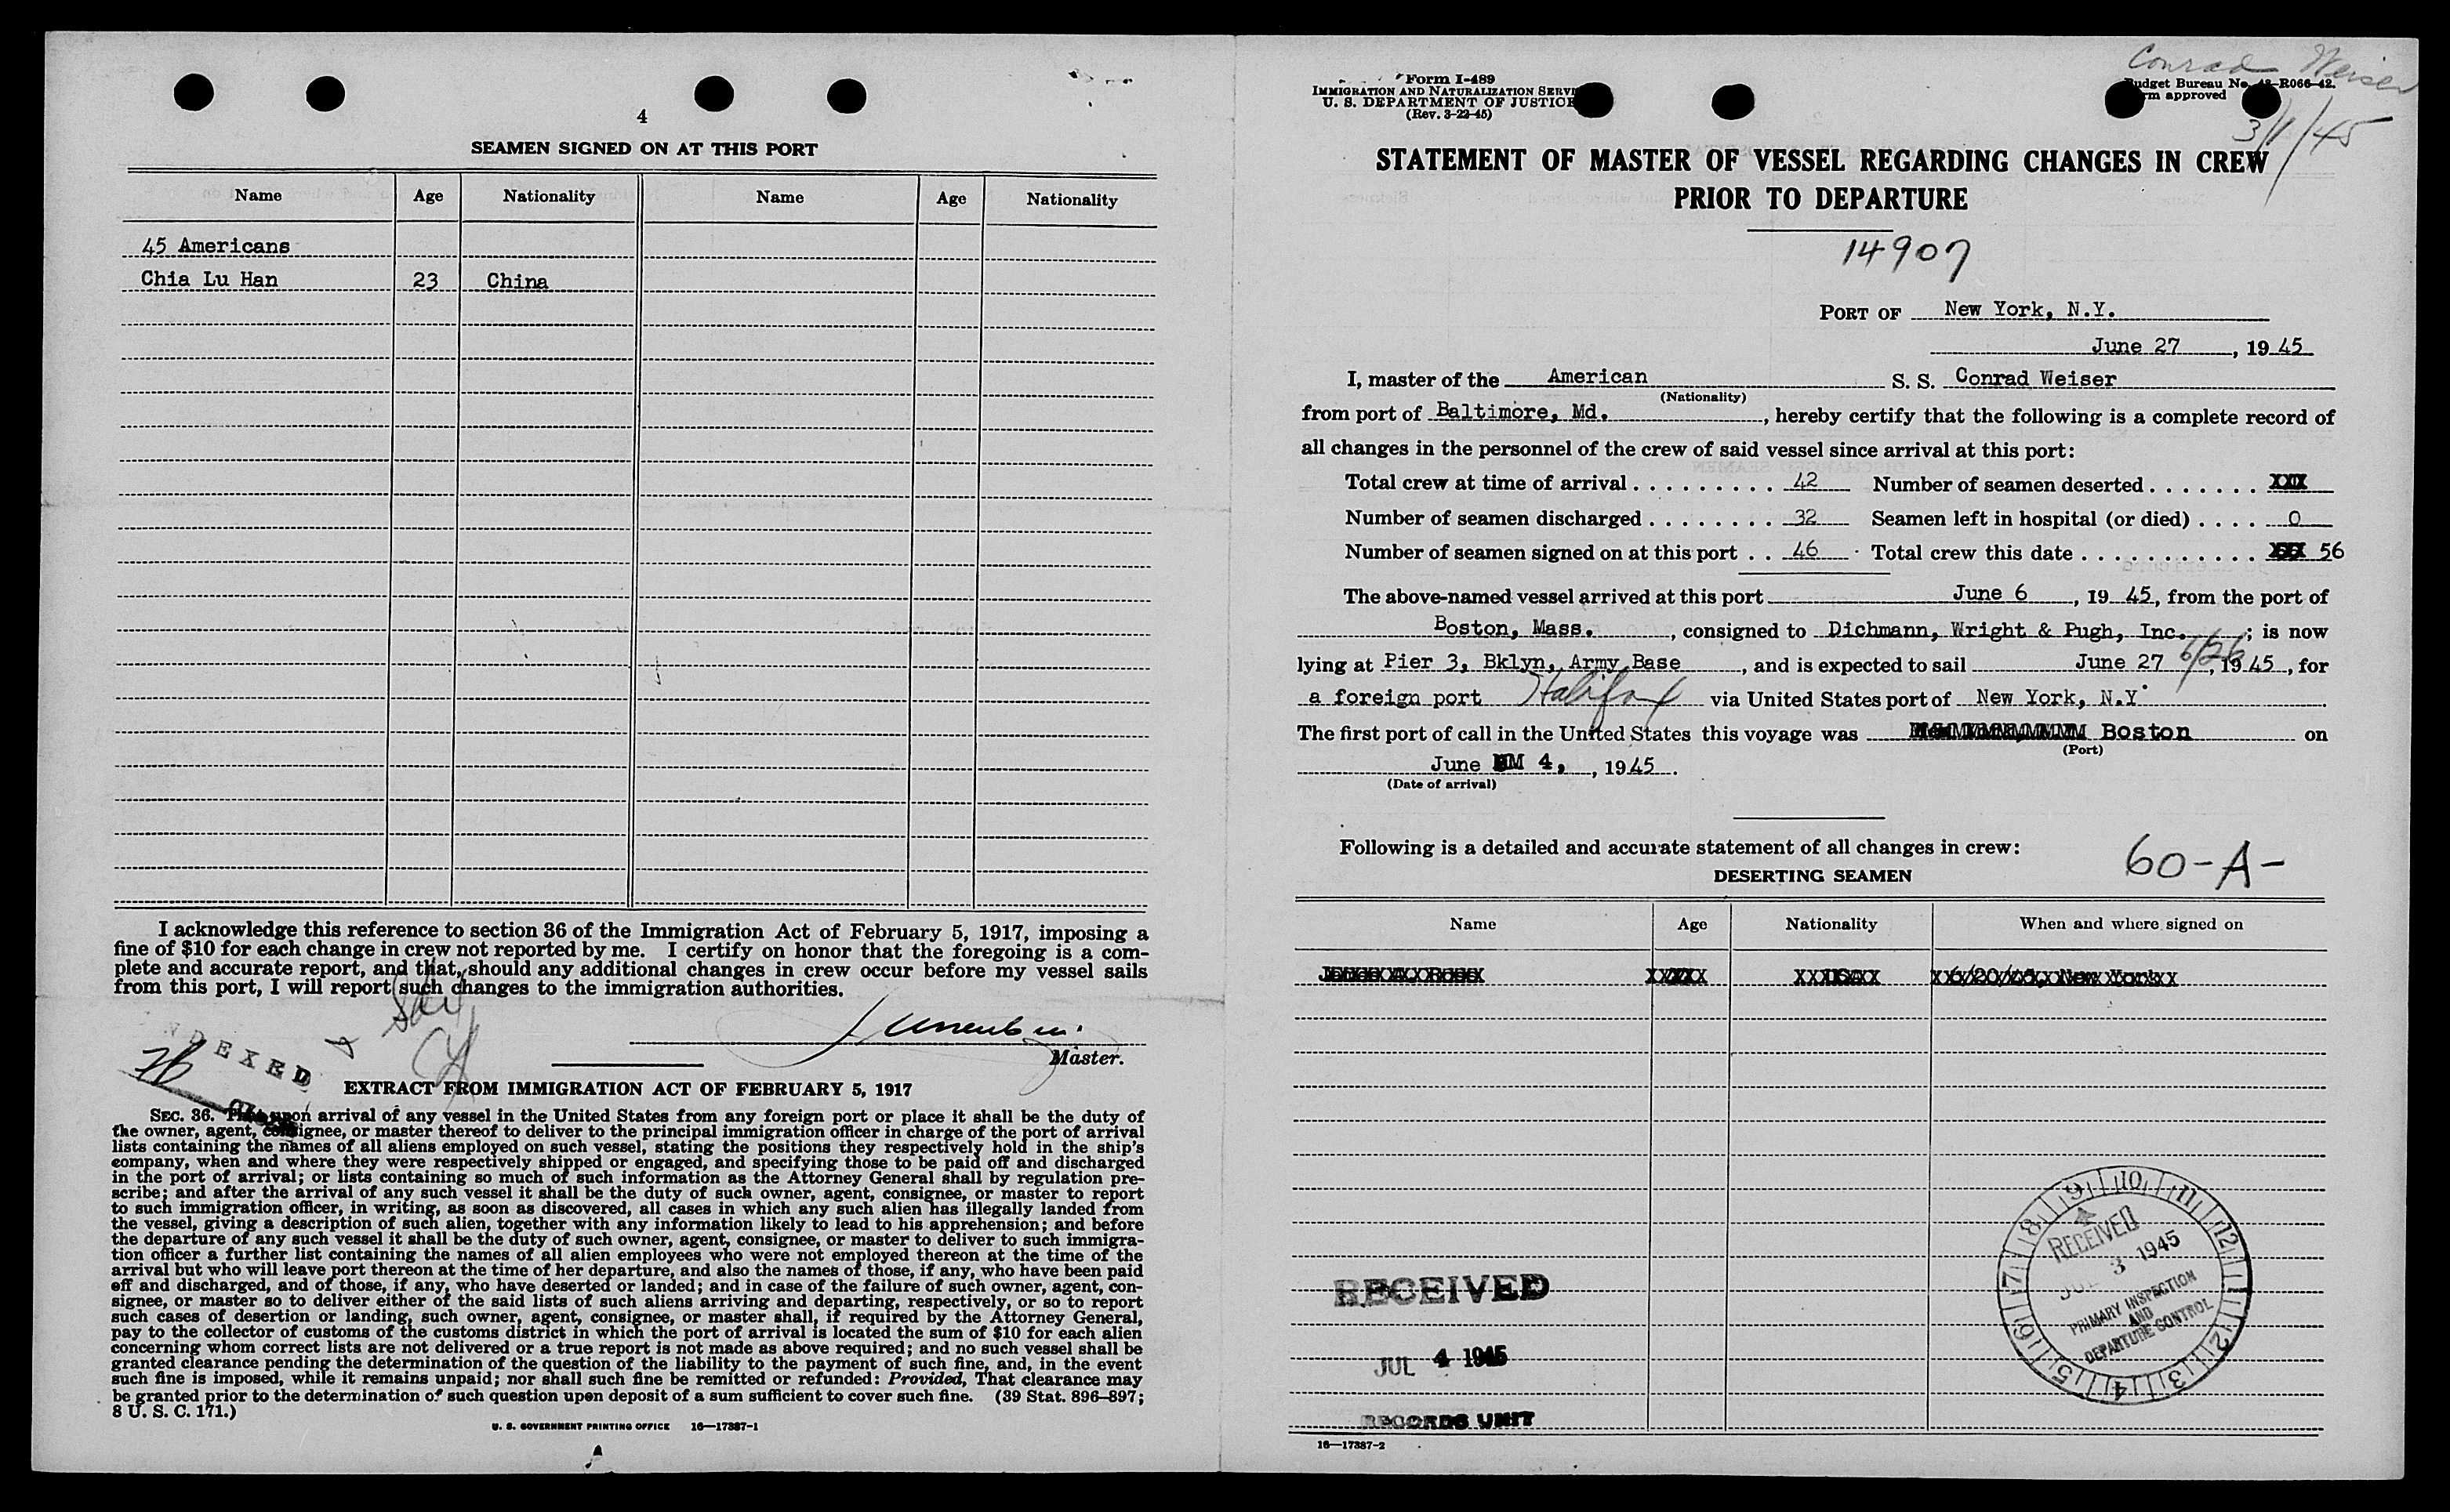 4
SEAMEN SIGNED ON AT THIS PORT
Name Age Nationality Name Age Nationality
45 Americans
Chia Lu Han 23 China
I acknowledge this reference to section 36 of the Immigration Act of February 5, 1917, imposing a
fine of $10 for each change in crew not reported by me. I certify on honor that the foregoing is a com-
plete and accurate report, and that, should any additional changes in crew occur before my vessel sails
from this port, I will report such changes to the immigration authorities.
Master.
INDEXED
EXTRACT FROM IMMIGRATION ACT OF FEBRUARY 5, 1917
SEC. 36. That upon arrival of any vessel in the United States from any foreign port or place it shall be the duty of
the owner, agent, consignee, or master thereof to deliver to the principal immigration officer in charge of the port of arrival
lists containing the names of all aliens employed on such vessel, stating the positions they respectively hold in the ship's
company, when and where they were respectively shipped or engaged, and specifying those to be paid off and discharged
in the port of arrival; or lists containing so much of such information as the Attorney General shall by regulation pre-
scribe; and after the arrival of any such vessel it shall be the duty of such owner, agent, consignee, or master to report
to such immigration officer, in writing, as soon as discovered, all cases in which any such alien has illegally landed from
the vessel, giving a description of such alien, together with any information likely to lead to his apprehension; and before
the departure of any such vessel it shall be the duty of such owner, agent, consignee, or master to deliver to such immigra-
tion officer a further list containing the names of all alien employees who were not employed thereon at the time of the
arrival but who will leave port thereon at the time of her departure, and also the names of those, if any, who have been paid
off and discharged, and of those, if any, who have deserted or landed; and in case of the failure of such owner, agent, con-
signee, or master so to deliver either of the said lists of such aliens arriving and departing, respectively, or so to report
such cases of desertion or landing, such owner, agent, consignee, or master shall, if required by the Attorney General,
pay to the collector of customs of the customs district in which the port of arrival is located the sum of $10 for each alien
concerning whom correct lists are not delivered or a true report is not made as above required; and no such vessel shall be
granted clearance pending the determination of the question of the liability to the payment of such fine, and, in the event
such fine is imposed, while it remains unpaid; nor shall such fine be remitted or refunded: Provided, That clearance may
be granted prior to the determination of such question upon deposit of a sum sufficient to cover such fine. (39 Stat. 896–897;
8 U. S. C. 171.)
U. S. GOVERNMENT PRINTING OFFICE 16—17387-1
Conrad Weiser
3/1/45
Form I-489
IMMIGRATION AND NATURALIZATION SERVI
U. S. DEPARTMENT OF JUSTICE
(Rev. 3-22-45)
Budget Bureau No. 43-R066-42.
rm approved
STATEMENT OF MASTER OF VESSEL REGARDING CHANGES IN CREW
PRIOR TO DEPARTURE
14907
PORT OF New York, N.Y.
June 27, 1945
I, master of the American S. S. Conrad Weiser
(Nationality)
from port of Baltimore, Md., hereby certify that the following is a complete record of
all changes in the personnel of the crew of said vessel since arrival at this port:
Total crew at time of arrival . . . . . . . . . 42 Number of seamen deserted . . . . . . . XXX
Number of seamen discharged . . . . . . . . 32 Seamen left in hospital (or died) . . . . 0
Number of seamen signed on at this port . . 46 Total crew this date . . . . . . . . . . . 56
The above-named vessel arrived at this port June 6, 1945, from the port of
Boston, Mass., consigned to Dichmann, Wright & Pugh, Inc.; is now
lying at Pier 3, Bklyn, Army Base, and is expected to sail June 27 6/26, 1945, for
a foreign port Halifax via United States port of New York, N.Y.
The first port of call in the United States this voyage was Boston on
(Port)
June 4, , 1945.
(Date of arrival)
Following is a detailed and accurate statement of all changes in crew:
60-A-
DESERTING SEAMEN
Name Age Nationality When and where signed on
RECEIVED
JUL 4 1945
RECORDS UNIT
9 10 11 12 1 2 3 4 5 6 7 8
RECEIVED
JUL 3 1945
PRIMARY INSPECTION
AND
DEPARTURE CONTROL
16—17387-2